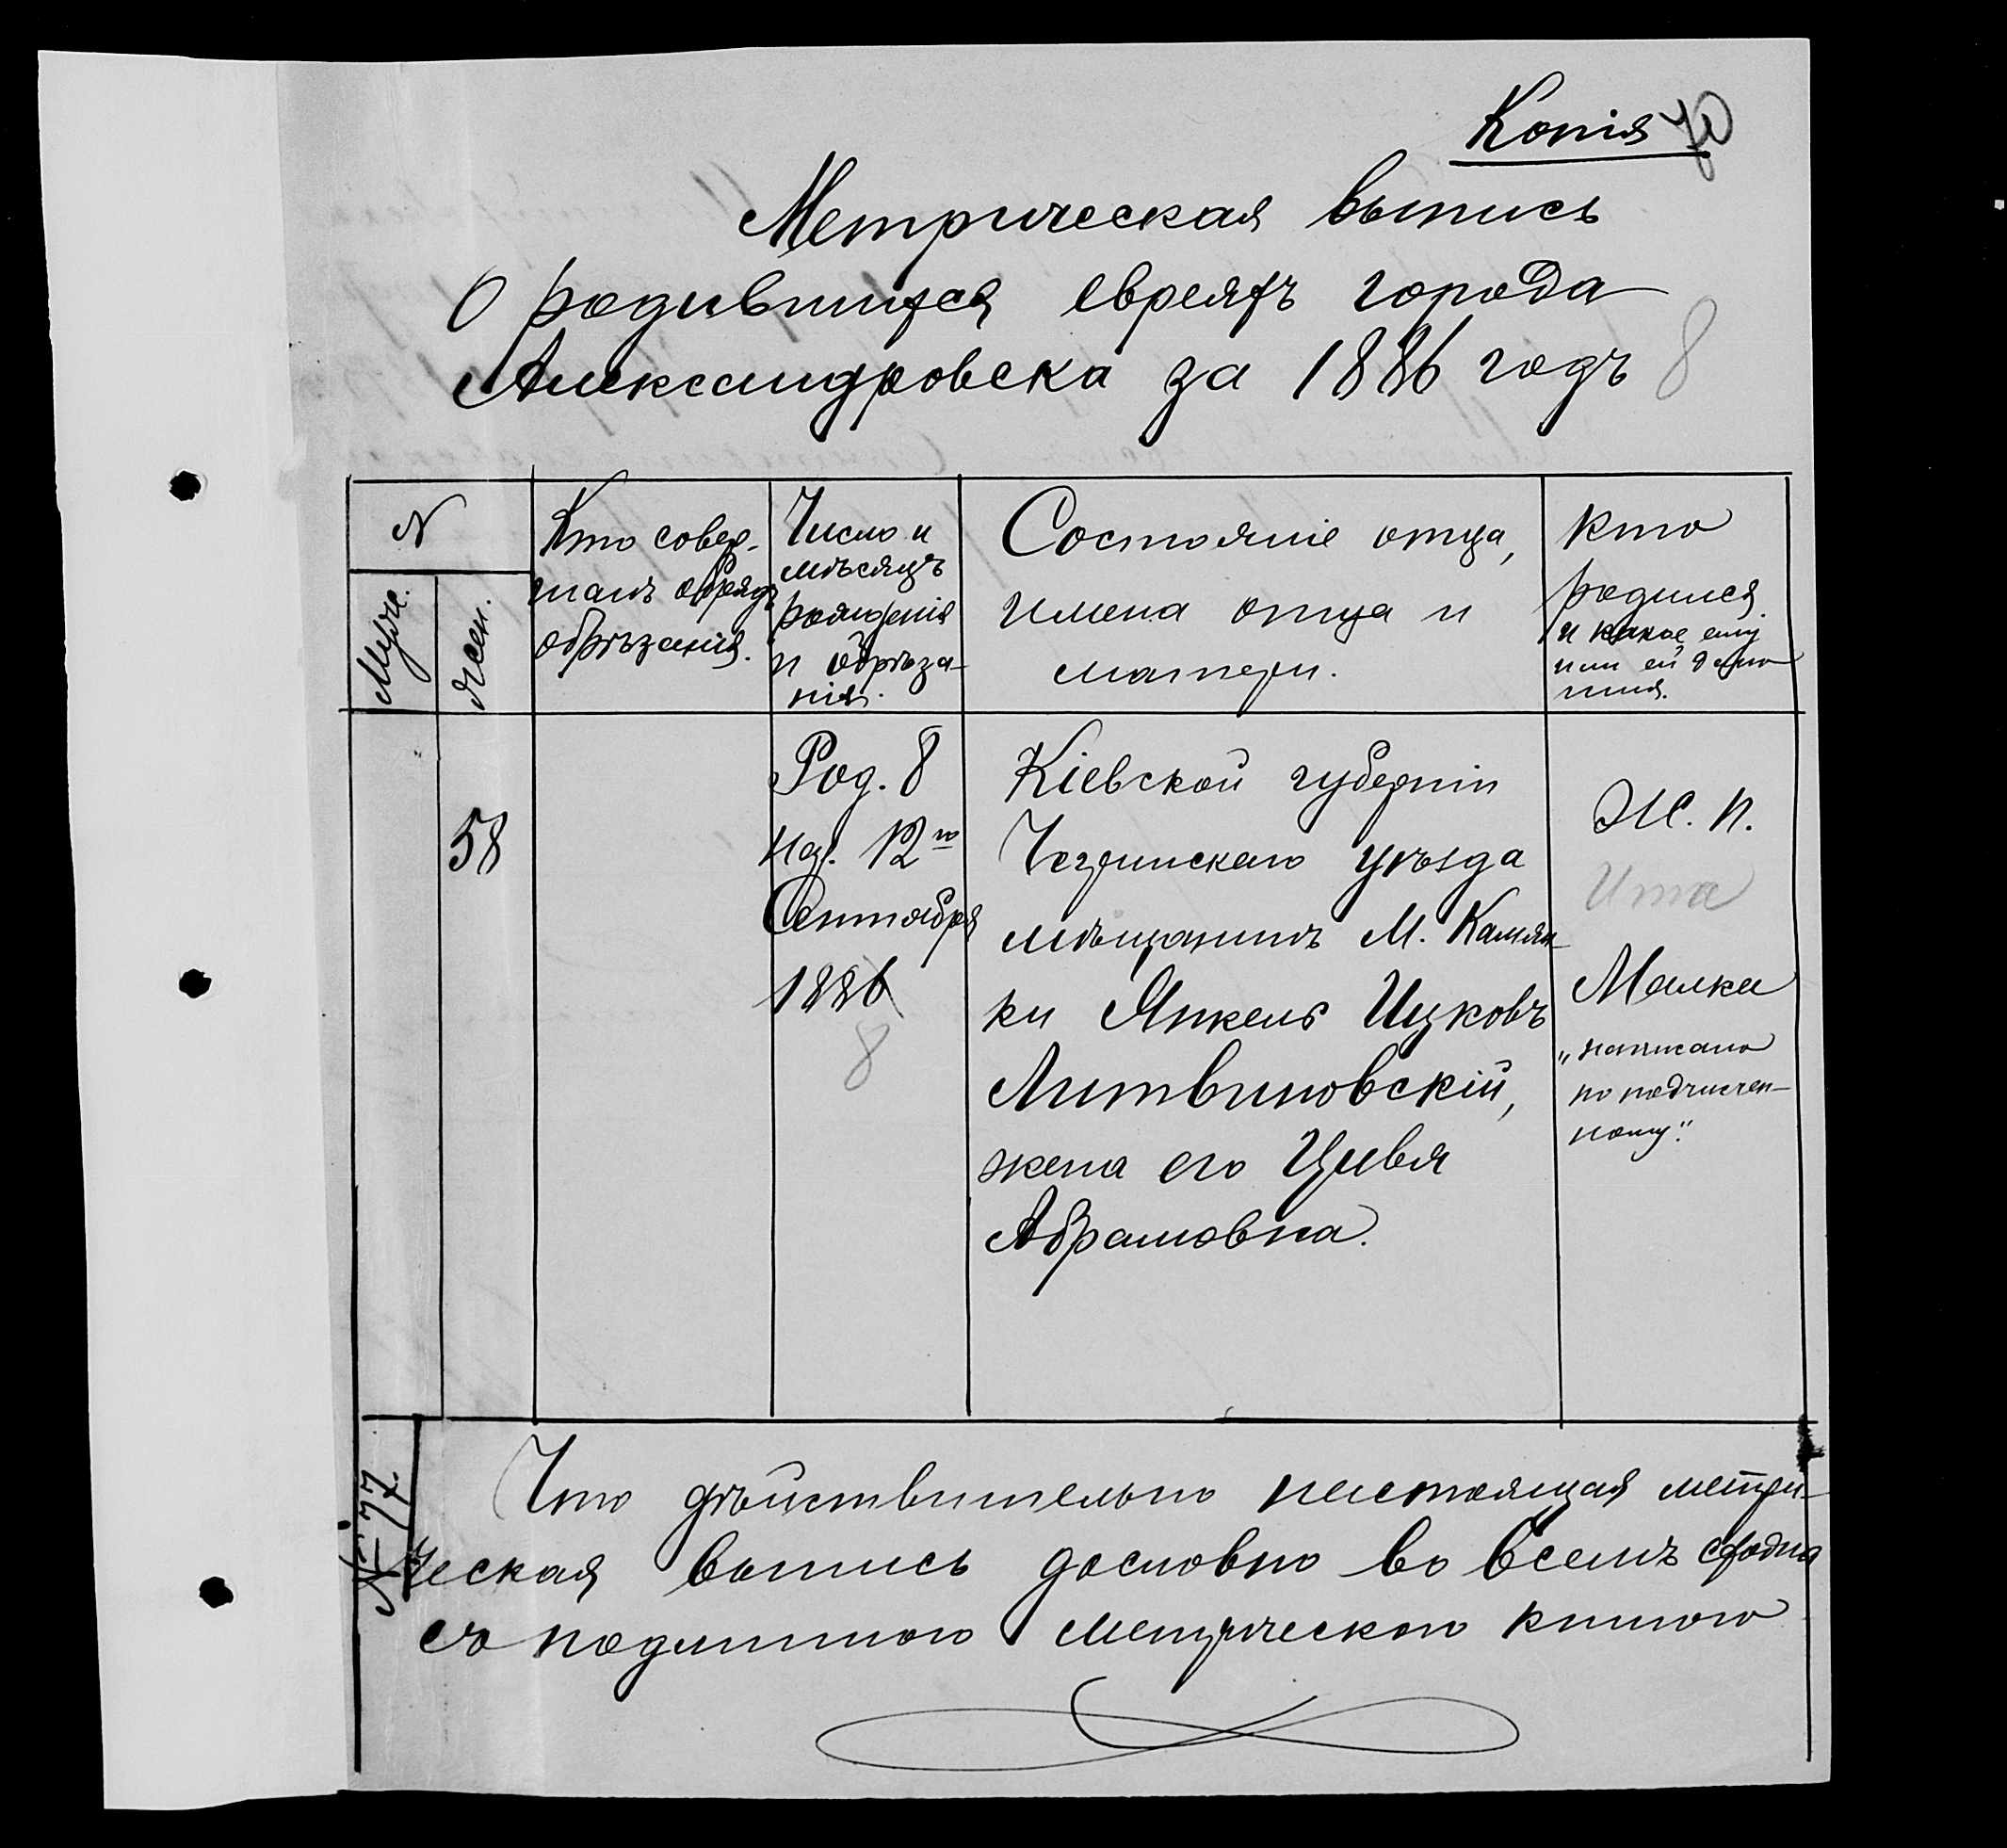 Копія 70
Метрическая выпись
О родившихся евреяхъ города
Александровска за 1886 годъ 8
N
Муж.
жен.
Кто совер-
шалъ обрядъ
обрѣзанія.
Число и
мѣсяцъ
рожденія
и обрѣза-
нія.
Состояніе отца,
имена отца и
матери.
Кто
родился
и какое ему
или ей дано
имя.
58
Род. 8
наз. 12го
Сентября
1886
8
Кіевской губерніи
Чегринскаго уѣзда
мѣщанинъ М. Камян-
ки Янкель Ицковъ
Литвиновскій,
жена его Цивья
Абрамовна.
Ж. п.
Ита
Малка
„написано
по подчищен-
ному."
№ 77
Что дѣйствительно настоящая метри-
ческая выпись дословно во всемъ сходна
съ подлинною метрическою книгою